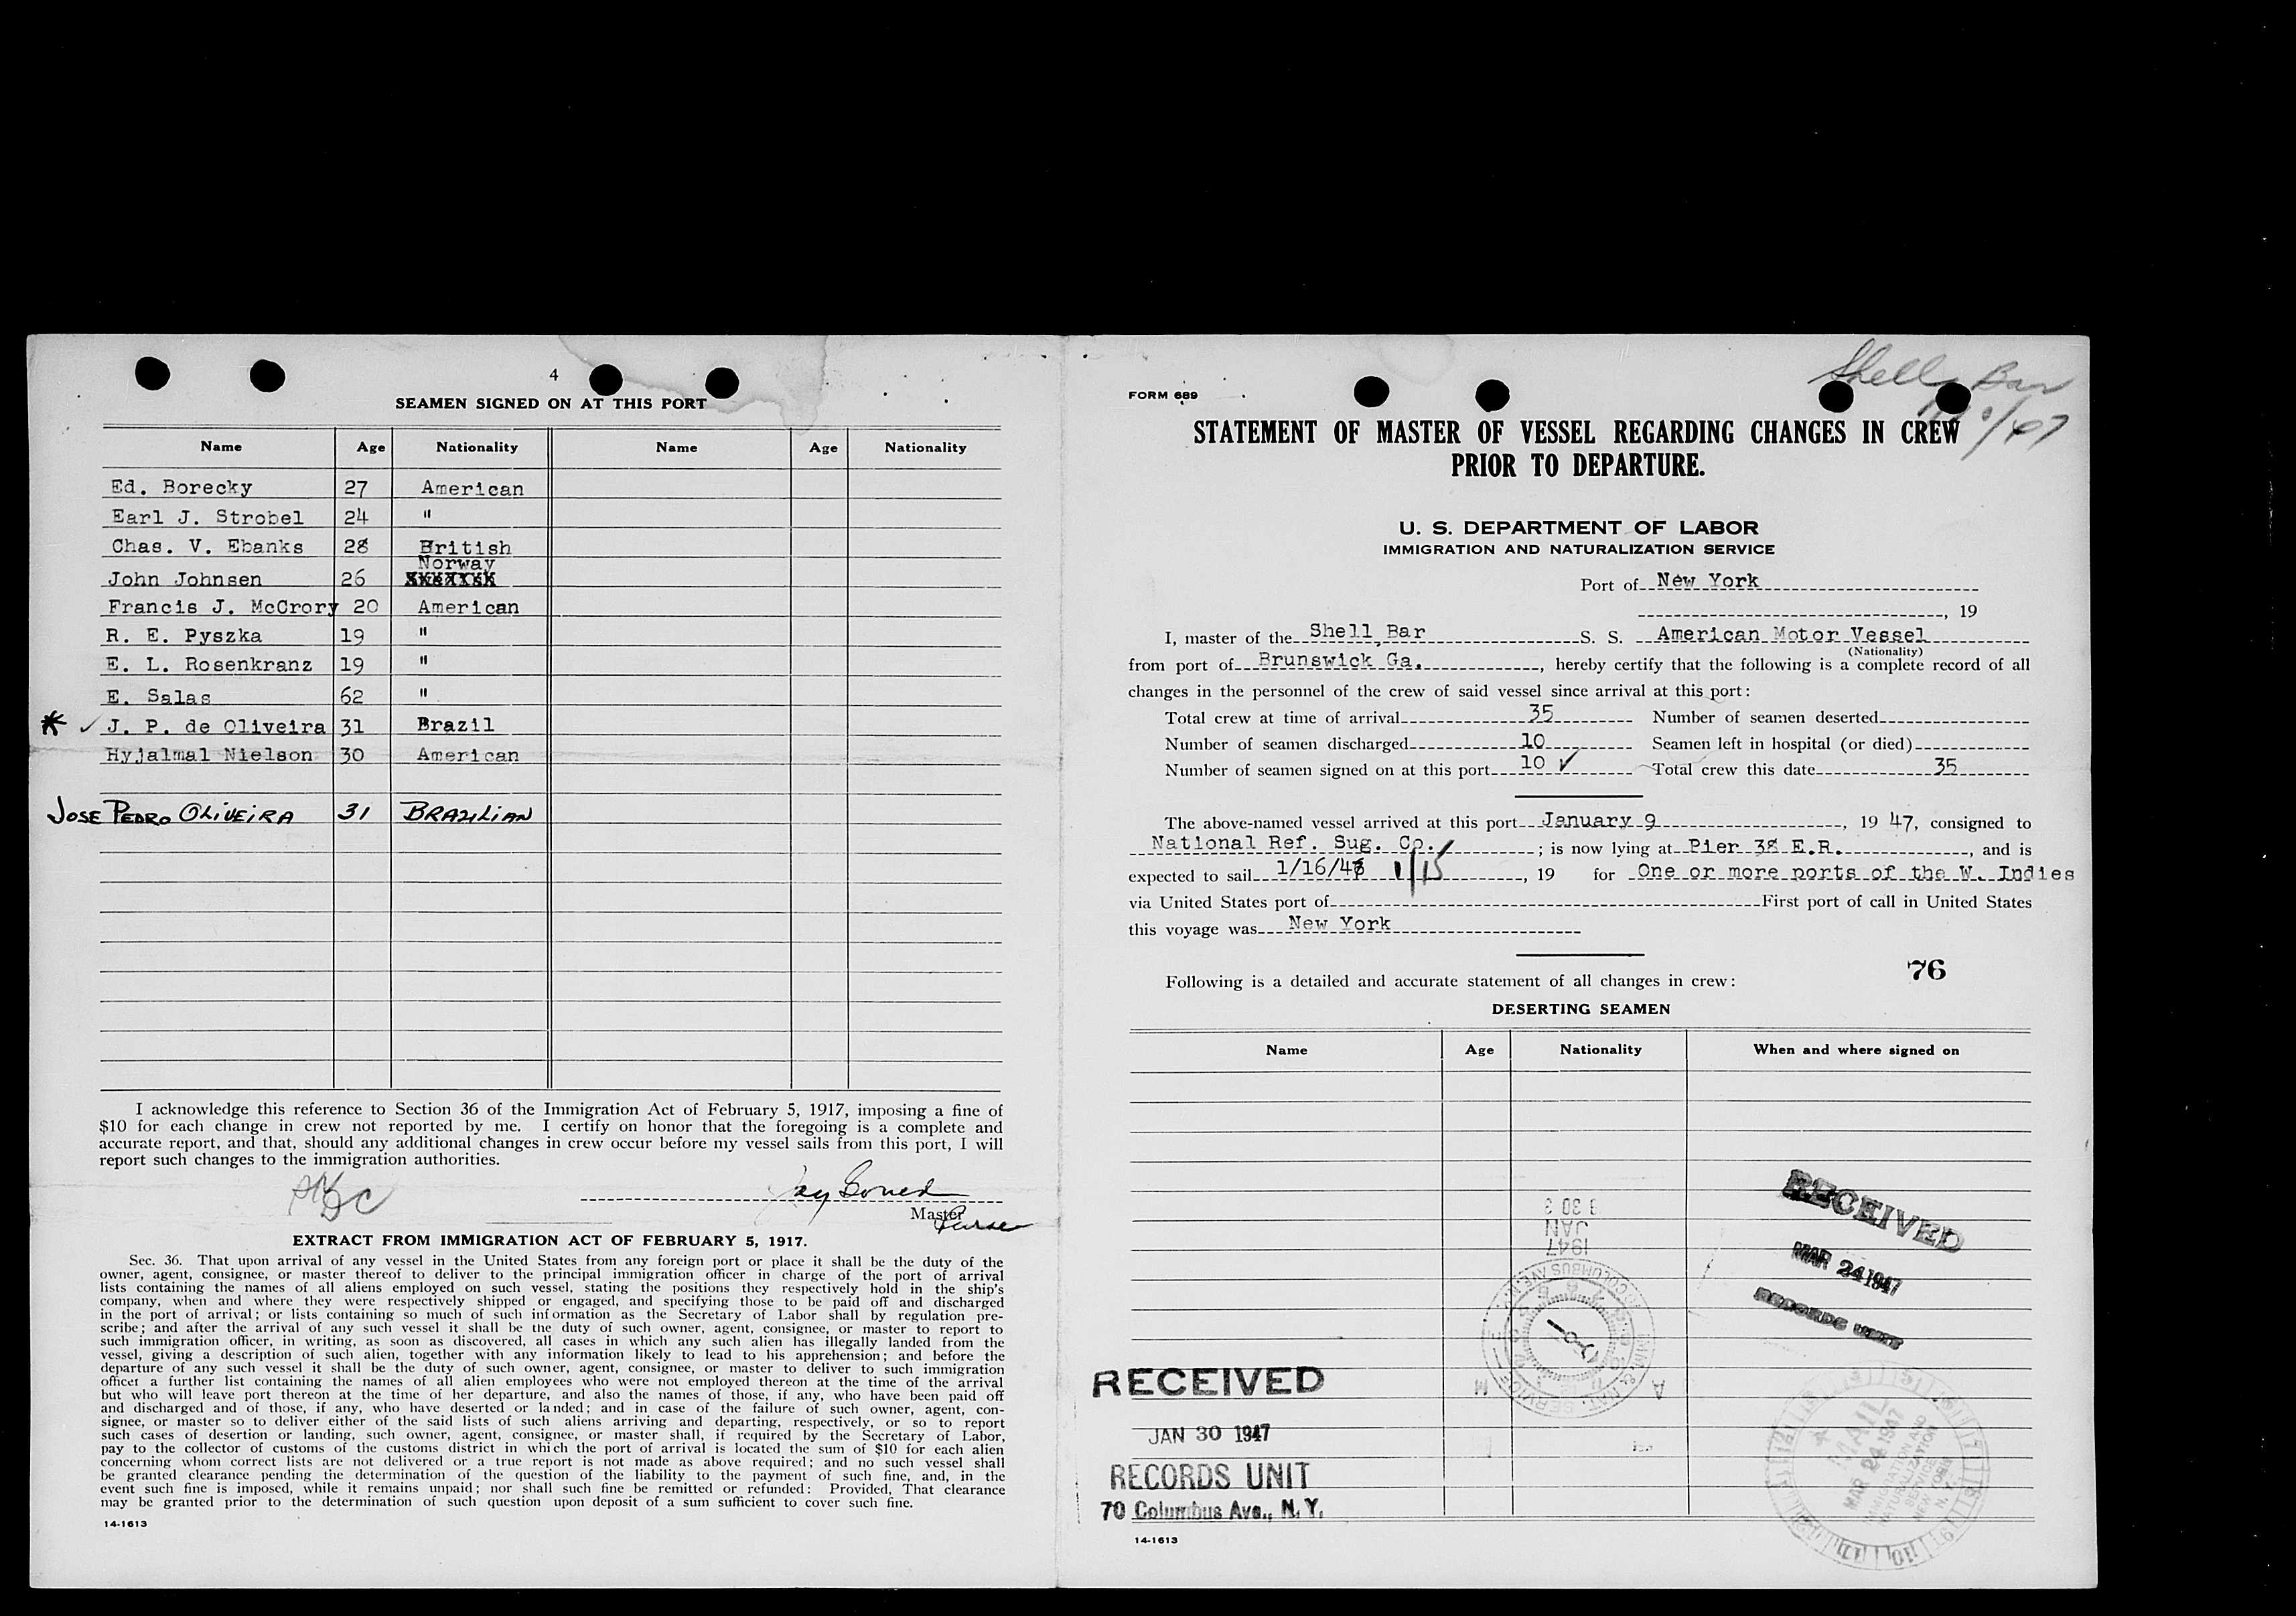 4
SEAMEN SIGNED ON AT THIS PORT
Name Age Nationality Name Age Nationality
Ed. Borecky 27 American
Earl J. Strobel 24 "
Chas. V. Ebanks 28 British
Norway
John Johnsen 26
Francis J. McCrory 20 American
R. E. Pyszka 19 "
E. L. Rosenkranz 19 "
E. Salas 62 "
* ✓ J. P. de Oliveira 31 Brazil
Hyjalmal Nielson 30 American
JOSE PEDRO OLIVEIRA 31 BRAZILIAN
I acknowledge this reference to Section 36 of the Immigration Act of February 5, 1917, imposing a fine of
$10 for each change in crew not reported by me. I certify on honor that the foregoing is a complete and
accurate report, and that, should any additional changes in crew occur before my vessel sails from this port, I will
report such changes to the immigration authorities.
Master
Purser
EXTRACT FROM IMMIGRATION ACT OF FEBRUARY 5, 1917.
Sec. 36. That upon arrival of any vessel in the United States from any foreign port or place it shall be the duty of the
owner, agent, consignee, or master thereof to deliver to the principal immigration officer in charge of the port of arrival
lists containing the names of all aliens employed on such vessel, stating the positions they respectively hold in the ship's
company, when and where they were respectively shipped or engaged, and specifying those to be paid off and discharged
in the port of arrival; or lists containing so much of such information as the Secretary of Labor shall by regulation pre-
scribe; and after the arrival of any such vessel it shall be the duty of such owner, agent, consignee, or master to report to
such immigration officer, in writing, as soon as discovered, all cases in which any such alien has illegally landed from the
vessel, giving a description of such alien, together with any information likely to lead to his apprehension; and before the
departure of any such vessel it shall be the duty of such owner, agent, consignee, or master to deliver to such immigration
officer a further list containing the names of all alien employees who were not employed thereon at the time of the arrival
but who will leave port thereon at the time of her departure, and also the names of those, if any, who have been paid off
and discharged and of those, if any, who have deserted or landed; and in case of the failure of such owner, agent, con-
signee, or master so to deliver either of the said lists of such aliens arriving and departing, respectively, or so to report
such cases of desertion or landing, such owner, agent, consignee, or master shall, if required by the Secretary of Labor,
pay to the collector of customs of the customs district in which the port of arrival is located the sum of $10 for each alien
concerning whom correct lists are not delivered or a true report is not made as above required; and no such vessel shall
be granted clearance pending the determination of the question of the liability to the payment of such fine, and, in the
event such fine is imposed, while it remains unpaid; nor shall such fine be remitted or refunded: Provided, That clearance
may be granted prior to the determination of such question upon deposit of a sum sufficient to cover such fine.
14-1613
Shell Bar
FORM 689
STATEMENT OF MASTER OF VESSEL REGARDING CHANGES IN CREW
PRIOR TO DEPARTURE.
U. S. DEPARTMENT OF LABOR
IMMIGRATION AND NATURALIZATION SERVICE
Port of New York
, 19
I, master of the Shell Bar S. S. American Motor Vessel
(Nationality)
from port of Brunswick Ga. , hereby certify that the following is a complete record of all
changes in the personnel of the crew of said vessel since arrival at this port:
Total crew at time of arrival 35 Number of seamen deserted
Number of seamen discharged 10 Seamen left in hospital (or died)
Number of seamen signed on at this port 10 ✓ Total crew this date 35
The above-named vessel arrived at this port January 9 , 19 47, consigned to
National Ref. Sug. Co. ; is now lying at Pier 38 E.R. , and is
expected to sail 1/16/47 1/15 , 19 for One or more ports of the W. Indies
via United States port of First port of call in United States
this voyage was New York
76
Following is a detailed and accurate statement of all changes in crew:
DESERTING SEAMEN
Name Age Nationality When and where signed on
RECEIVED
MAR 24 1947
RECORDS UNIT
JAN
1947
RECEIVED
JAN 30 1947
RECORDS UNIT
70 Columbus Ave., N. Y.
MAIL
MAR 24 1947
IMMIGRATION AND
NATURALIZATION
SERVICE
NEW YORK
N. Y.
14-1613